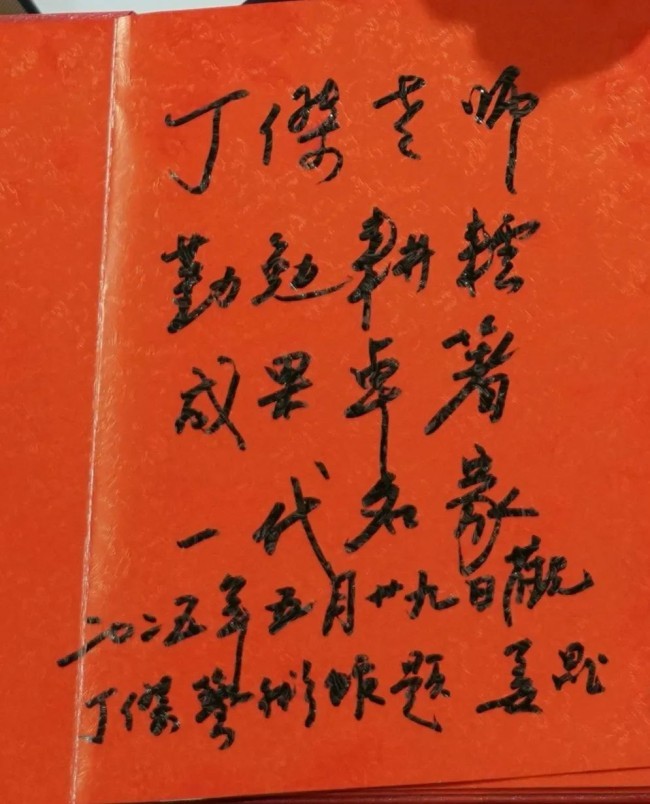 丁傑老师
勤勉耕耘
成果卓著
一代名家
二〇二五年五月廿九日觀
丁傑艺术馆題 姜昆